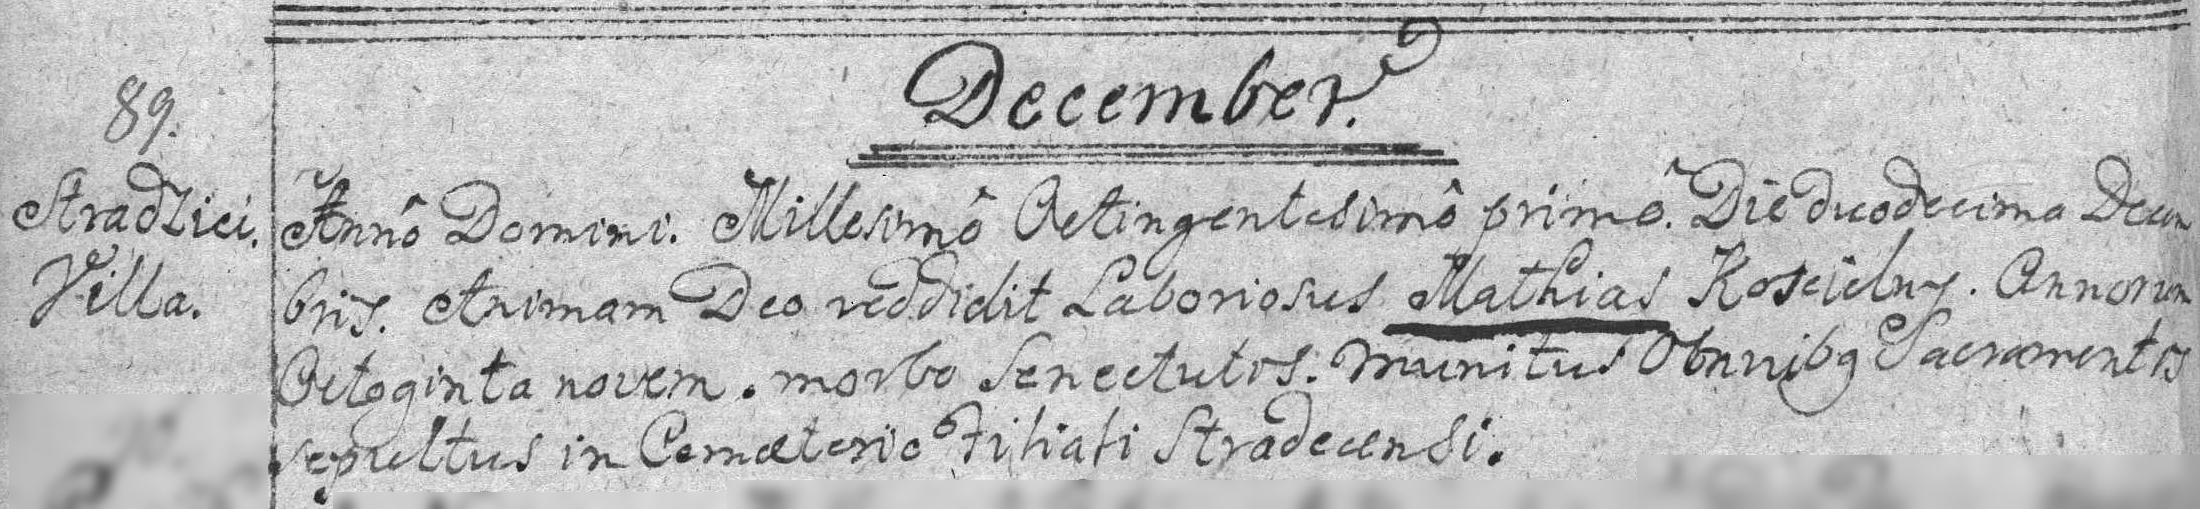 December.
89.
Stradzici. Annô Domini. Millesimô Octingentesimô primô. Die duodecima Decem
Villa. bris. Animam Deo reddidit Laboriosus Mathias Koscielny. Annorum
Octoginta novem. morbo Senectutis. munitus Omnibq Sacramentis
sepultus in Cemæterio Filiali Stradecensi.